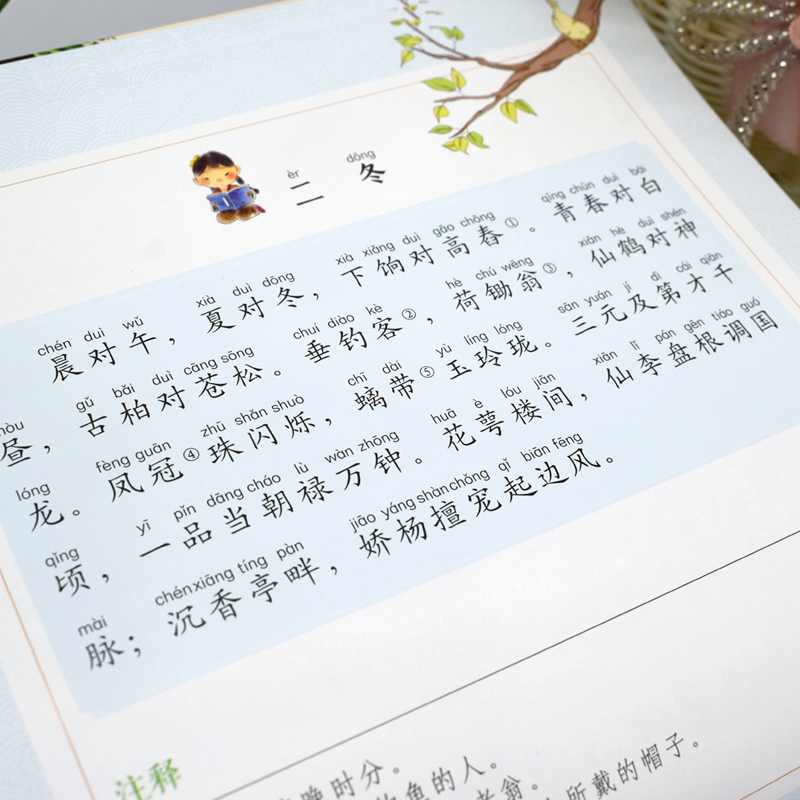 èr dōng
二 冬
chén duì wǔ xià duì dōng xià xiǎng duì gāo chōng qīng chūn duì bái
晨对午，夏对冬，下饷对高舂①。青春对白
hòu gǔ bǎi duì cāng sōng chuí diào kè hè chú wēng xiān hè duì shén
昼，古柏对苍松。垂钓客②，荷锄翁③，仙鹤对神
lóng fèng guān zhū shǎn shuò chī dài yù líng lóng sān yuán jí dì cái qiān
龙。凤冠④珠闪烁，螭带⑤玉玲珑。三元及第才千
qǐng yī pǐn dāng cháo lù wàn zhōng huā è lóu jiān xiān lǐ pán gēn tiáo guó
顷，一品当朝禄万钟。花萼楼间，仙李盘根调国
mài chén xiāng tíng pàn jiāo yáng shàn chǒng qǐ biān fēng
脉；沉香亭畔，娇杨擅宠起边风。
注释
晚时分。
鱼的人。
老翁。
所戴的帽子。